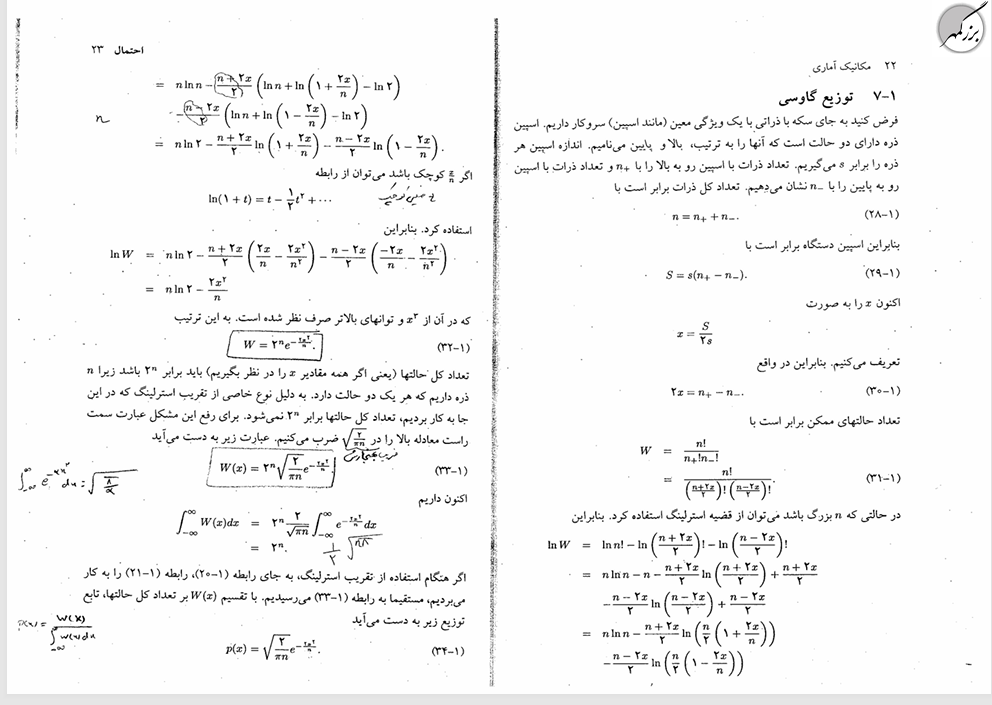 بزرگمهر
۲۲ مکانیک آماری
۷-۱ توزیع گاوسی
فرض کنید به جای سکه با ذراتی با یک ویژگی معین (مانند اسپین) سروکار داریم. اسپین
ذره دارای دو حالت است که آنها را به ترتیب، بالا و پایین می‌نامیم. اندازه اسپین هر
ذره را برابر s می‌گیریم. تعداد ذرات با اسپین رو به بالا را با n₊ و تعداد ذرات با اسپین
رو به پایین را با n₋ نشان می‌دهیم. تعداد کل ذرات برابر است با
n = n₊ + n₋. (۲۸-۱)
بنابراین اسپین دستگاه برابر است با
S = s(n₊ − n₋). (۲۹-۱)
اکنون x را به صورت
x = S/۲s
تعریف می‌کنیم. بنابراین در واقع
۲x = n₊ − n₋. (۳۰-۱)
تعداد حالتهای ممکن برابر است با
W = n!/(n₊!n₋!)
= n!/(((n+۲x)/۲)! ((n−۲x)/۲)!). (۳۱-۱)
در حالتی که n بزرگ باشد می‌توان از قضیه استرلینگ استفاده کرد. بنابراین
ln W = ln n! − ln ((n+۲x)/۲)! − ln ((n−۲x)/۲)!
= n ln n − n − (n+۲x)/۲ ln ((n+۲x)/۲) + (n+۲x)/۲
− (n−۲x)/۲ ln ((n−۲x)/۲) + (n−۲x)/۲
= n ln n − (n+۲x)/۲ ln (n/۲ (۱ + ۲x/n))
− (n−۲x)/۲ ln (n/۲ (۱ − ۲x/n))
احتمال ۲۳
= n ln n − (n+۲x)/۲ (ln n + ln (۱ + ۲x/n) − ln ۲)
− (n−۲x)/۲ (ln n + ln (۱ − ۲x/n) − ln ۲)
n
= n ln ۲ − (n+۲x)/۲ ln (۱ + ۲x/n) − (n−۲x)/۲ ln (۱ − ۲x/n).
اگر x/n کوچک باشد می‌توان از رابطه
ln(۱ + t) = t − ۱/۲ t² + ···
استفاده کرد. بنابراین
ln W = n ln ۲ − (n+۲x)/۲ (۲x/n − ۲x²/n²) − (n−۲x)/۲ (−۲x/n − ۲x²/n²)
= n ln ۲ − ۲x²/n
که در آن از x³ و توانهای بالاتر صرف نظر شده است. به این ترتیب
W = ۲ⁿe^(−۲x²/n). (۳۲-۱)
تعداد کل حالتها (یعنی اگر همه مقادیر x را در نظر بگیریم) باید برابر ۲ⁿ باشد زیرا n
ذره داریم که هر یک دو حالت دارد. به دلیل نوع خاصی از تقریب استرلینگ که در این
جا به کار بردیم، تعداد کل حالتها برابر ۲ⁿ نمی‌شود. برای رفع این مشکل عبارت سمت
راست معادله بالا را در √(۲/πn) ضرب می‌کنیم. عبارت زیر به دست می‌آید
ضریب بهنجارش
W(x) = ۲ⁿ √(۲/πn) e^(−۲x²/n). (۳۳-۱)
∫₋∞^∞ e^(−αx²) dx = √(π/α)
اکنون داریم
∫₋∞^∞ W(x)dx = ۲ⁿ ۲/√πn ∫₋∞^∞ e^(−۲x²/n) dx
= ۲ⁿ.
اگر هنگام استفاده از تقریب استرلینگ، به جای رابطه (۲۰-۱)، رابطه (۲۱-۱) را به کار
می‌بردیم، مستقیما به رابطه (۳۳-۱) می‌رسیدیم. با تقسیم W(x) بر تعداد کل حالتها، تابع
توزیع زیر به دست می‌آید
P(x) = W(x)/∫₋∞^∞ W(x)dx
p(x) = √(۲/πn) e^(−۲x²/n). (۳۴-۱)